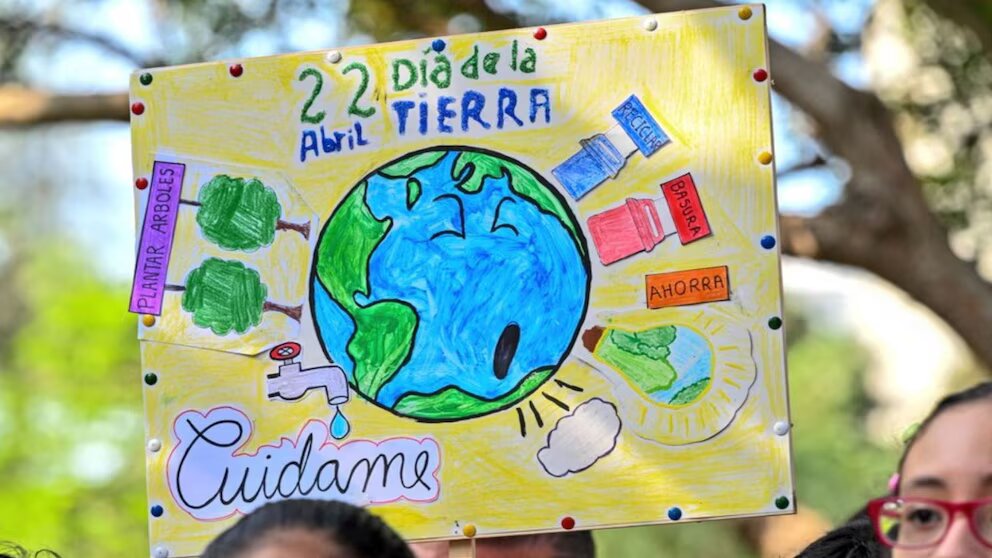 22
Abril
Díá de la
TIERRA
RECICLAR
BASURA
AHORRA
PLANTAR ARBOLES
Cuidame